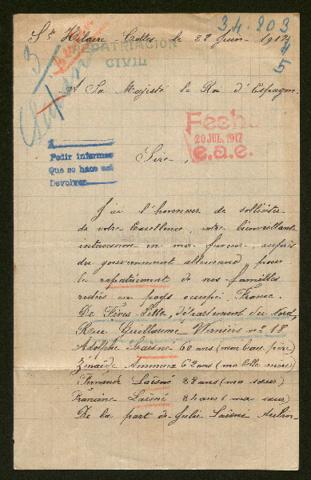 St Hilaire Cottes le 22 Juin 1917
34.203
REPATRIACION
CIVIL
3
45
A Sa Majesté le Roi d'Espagne
Fecha
20 JUL. 1917
e.a.e.
Sire,
Pedir informes
Que se hace así
Devolver
J'ai l'honneur de solliciter
de votre Excellence, votre bienveillante
intercession en ma faveur, auprès
du gouvernement allemand pour
le rapatriement de nos familles
restées en pays occupé, France.
De Fives-Lille, département du Nord,
Rue Guillaume Werniers no 18.
Adolphe Laisné 60 ans (mon beau père)
Zénaïde 62 ans (ma belle mère)
Fernande Laisné 28 ans (ma sœur)
Francine Laisné 24 ans (ma sœur)
De la part de Julie Laisné